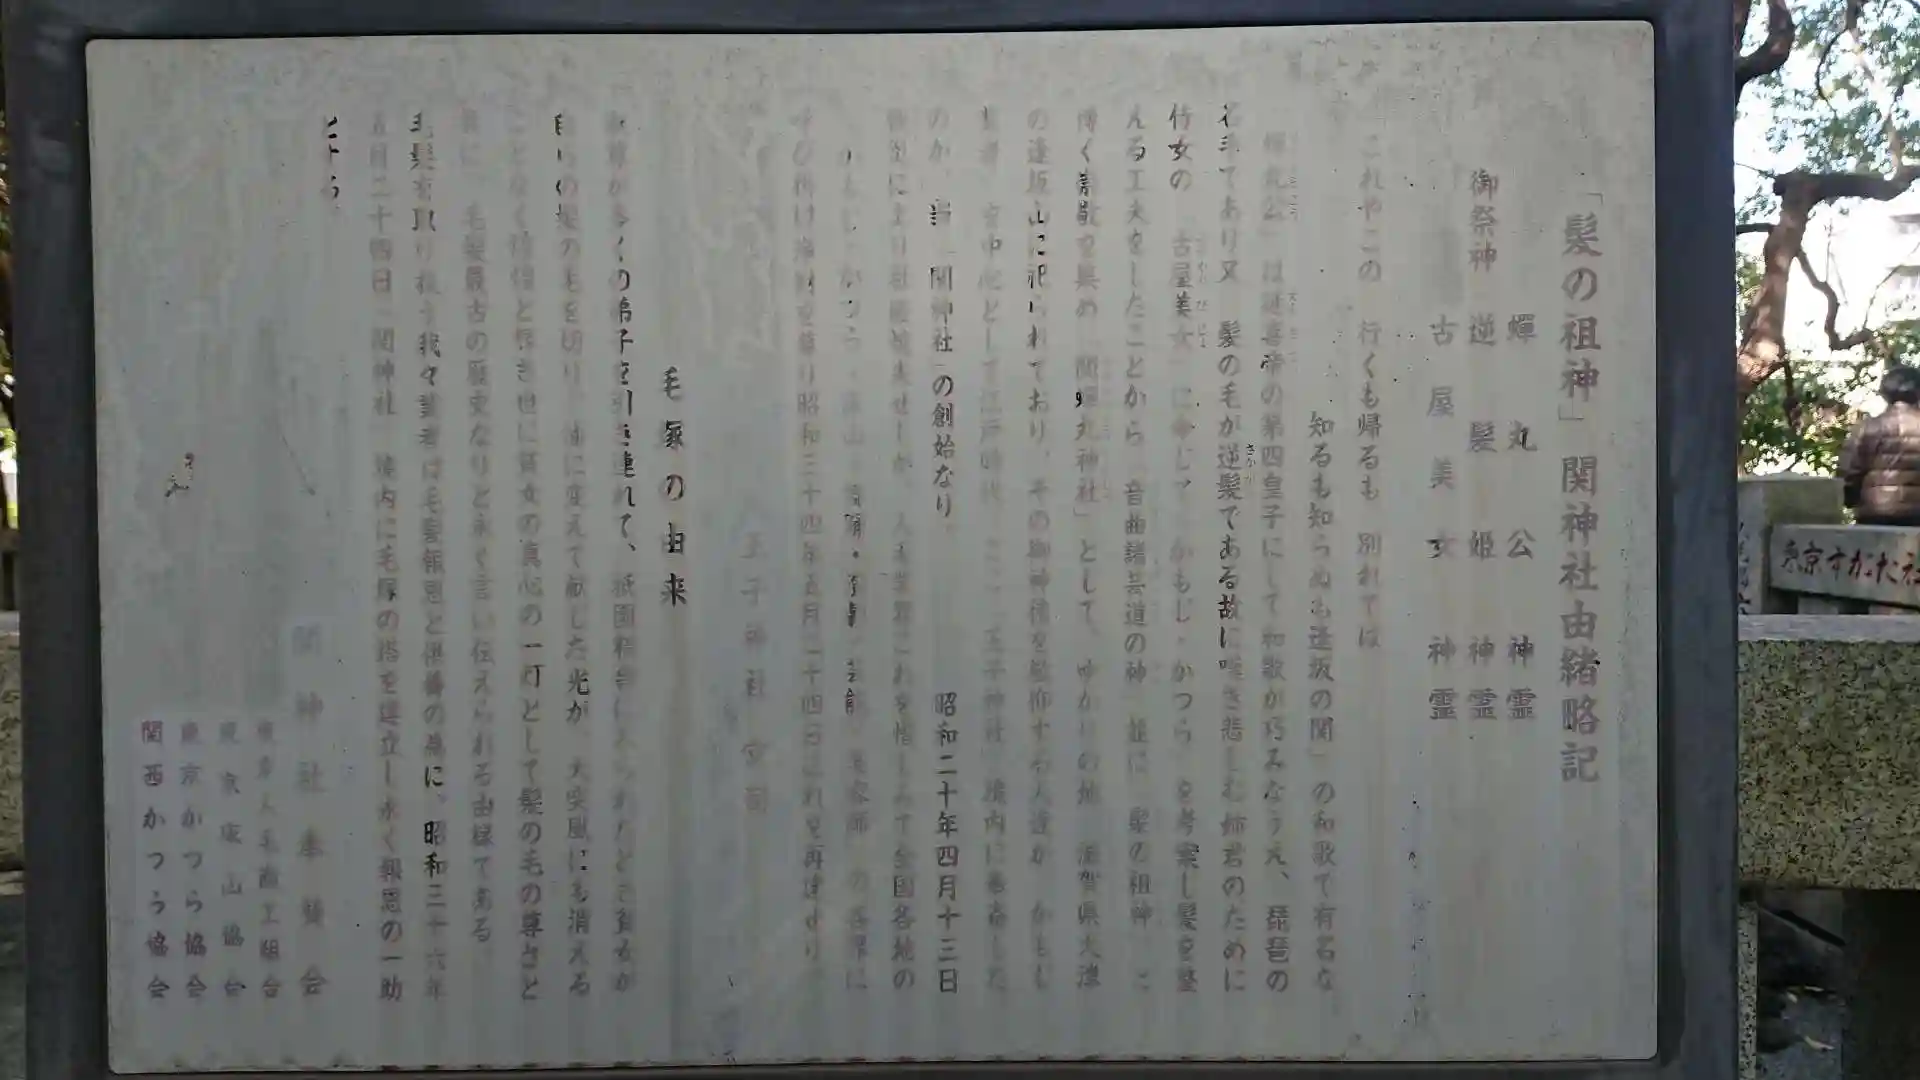 「髪の祖神」関神社由緒略記
蟬丸公 神霊
御祭神 逆髪姫 神霊
古屋美女 神霊
これやこの 行くも帰るも 別れては
知るも知らぬも逢坂の関」の和歌で有名な
は延喜帝の第四皇子にして和歌が巧みなうえ、琵琶の
名手であり又 髪の毛が逆髪である故に嘆き悲しむ姉君のために
侍女の 古屋美女」に命じて かもじ・かつら を考案し髪を整
える工夫をしたことから 音曲諸芸道の神 並に 髪の祖神 と
博く崇敬を集め 「関蟬丸神社」として、ゆかりの地 滋賀県大津
の逢坂山に祀られており、その御神徳を敬仰する人達が かもじ
を中心として江戸時代 ここ「王子神社」境内に奉斎した
のが、当「関神社」の創始なり。 昭和二十年四月十三日
により社殿焼失せしが、人毛業界これを惜しみて全国各地の
かもじ・かつら・ 芸能・美容師 の各界に
呼び掛け浄財を募り昭和三十四年五月二十四日これを再建せり。
王子神社 宮司
毛塚の由来
釈尊が多くの弟子を引き連れて、祇園精舎に入られたとき貧女が
自らの髪の毛を切り、油に変えて献じた光が、大突風にも消える
ことなく 煌煌と輝き世に貧女の真心の一灯として髪の毛の尊さと
毛髪最古の歴史なりと永く言い伝えられる由縁である。
毛髪を取り扱う我々業者は毛髪報恩と供養の為に、昭和三十六年
五月二十四日「関神社」境内に毛塚の塔を建立し永く報恩の一助
とする。
関神社奉賛会
東京人毛商工組合
東京床山協会
東京かつら協会
関西かつら協会
東京すがた社